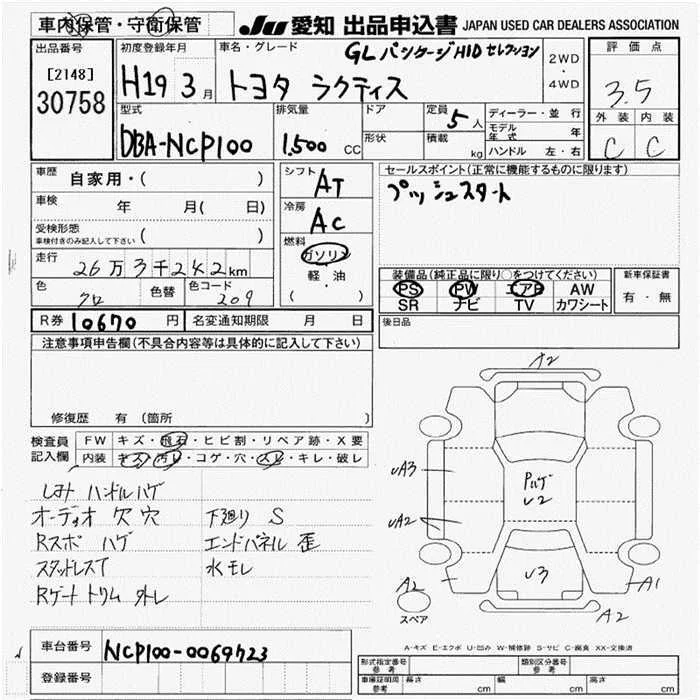 車内保管・守衛保管
JU 愛知 出品申込書 JAPAN USED CAR DEALERS ASSOCIATION
出品番号
[2148]
30758
初度登録年月
H19 3月
車名・グレード
GL パッケージHIDセレクション
トヨタ ラクティス
2WD
・
4WD
評価点
3.5
外装 内装
C C
型式
DBA-NCP100
排気量
1,500 CC
ドア
形状
定員 5人
積載 kg
ディーラー・並行
モデル年式 年
ハンドル 左・右
車歴 自家用・( )
車検 年 月( 日)
受検形態
車検付きのみ記入して下さい ( )
走行 26万3千242km
色 クロ 色替 色コード 209
シフト AT
冷房 AC
燃料
ガソリン
軽・油
( )
セールスポイント(正常に機能するものに限ります)
プッシュスタート
装備品(純正品に限り○をつけてください)
PS PW エアB AW
SR ナビ TV カワシート
新車保証書
有・無
R券 10670円 名変通知期限 月 日
後日品
注意事項申告欄(不具合内容等は具体的に記入して下さい)
修復歴 有(箇所
検査員記入欄
FW キズ・飛石・ヒビ割・リペア跡・X要
内装 キズ・汚レ・コゲ・穴・スレ・キレ・破レ
ハンドルハゲ
オーディオ欠穴 下廻りS
Rスポハゲ エンドパネル歪
スタッドレスT 水モレ
Rゲートトリム外レ
A2
UA3
UA2
U2
U3
A2
A1
A2
スペア
A-キズ E-エクボ U-凹み W-補修跡 S-サビ C-腐食 XX-交換済
車台番号 NCP100-0069723
登録番号
形式指定番号 参考
類別区分番号 参考
車庫証明用 参考 長さ cm 幅 cm 高さ cm